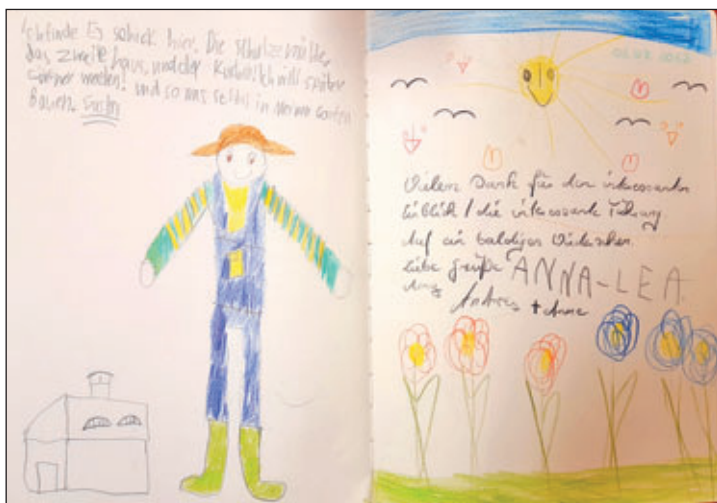 Ich finde Es schick hier. Die
das zweite haus, und der will später
werden! und so was selbst in meinem Garten
Bauen.
Vielen Dank für den interessanten
Einblick / die interessante Führung
Auf ein baldiges Wiedersehen.
Liebe Grüße ANNA-LEA
Andreas + Anne